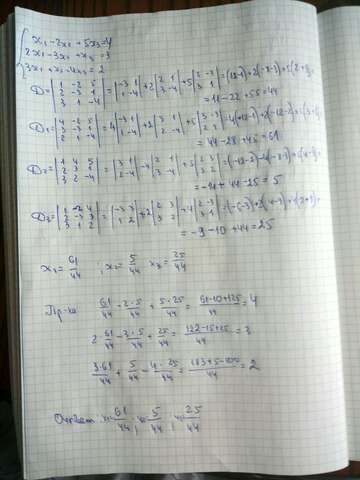 x₁-2x₂+5x₃=4
2x₁-3x₂+x₃=3
3x₁+x₂-4x₃=2
D=|1 -2 5; 2 -3 1; 3 1 -4|=|-3 1; 1 -4|+2|2 1; 3 -4|+5|2 -3; 3 1|
=11-22+55=44
D₁=|4 -2 5; 3 -3 1; 2 1 -4|=4|-3 1; 1 -4|+2|3 1; 2 -4|+5|3 -3; 2 1|
=44-28+45=61
D₂=|1 4 5; 2 3 1; 3 2 -4|=|3 1; 2 -4|-4|2 1; 3 -4|+5|2 3; 3 2|
=-14+44-25=5
D₃=|1 -2 4; 2 -3 3; 3 1 2|=|-3 3; 1 2|+2|2 3; 3 2|+4|2 -3; 3 1|
=-9-10+44=25
x₁=61/44 ; x₂=5/44 x₃=25/44
Пр-ка 61/44-2·5/44+5·25/44=61-10+125/44=4
2·61/44-3·5/44+25/44=122-15+25/44=3
3·61/44+5/44-4·25/44=183+5-100/44=2
Ответ: 61/44; 5/44; 25/44